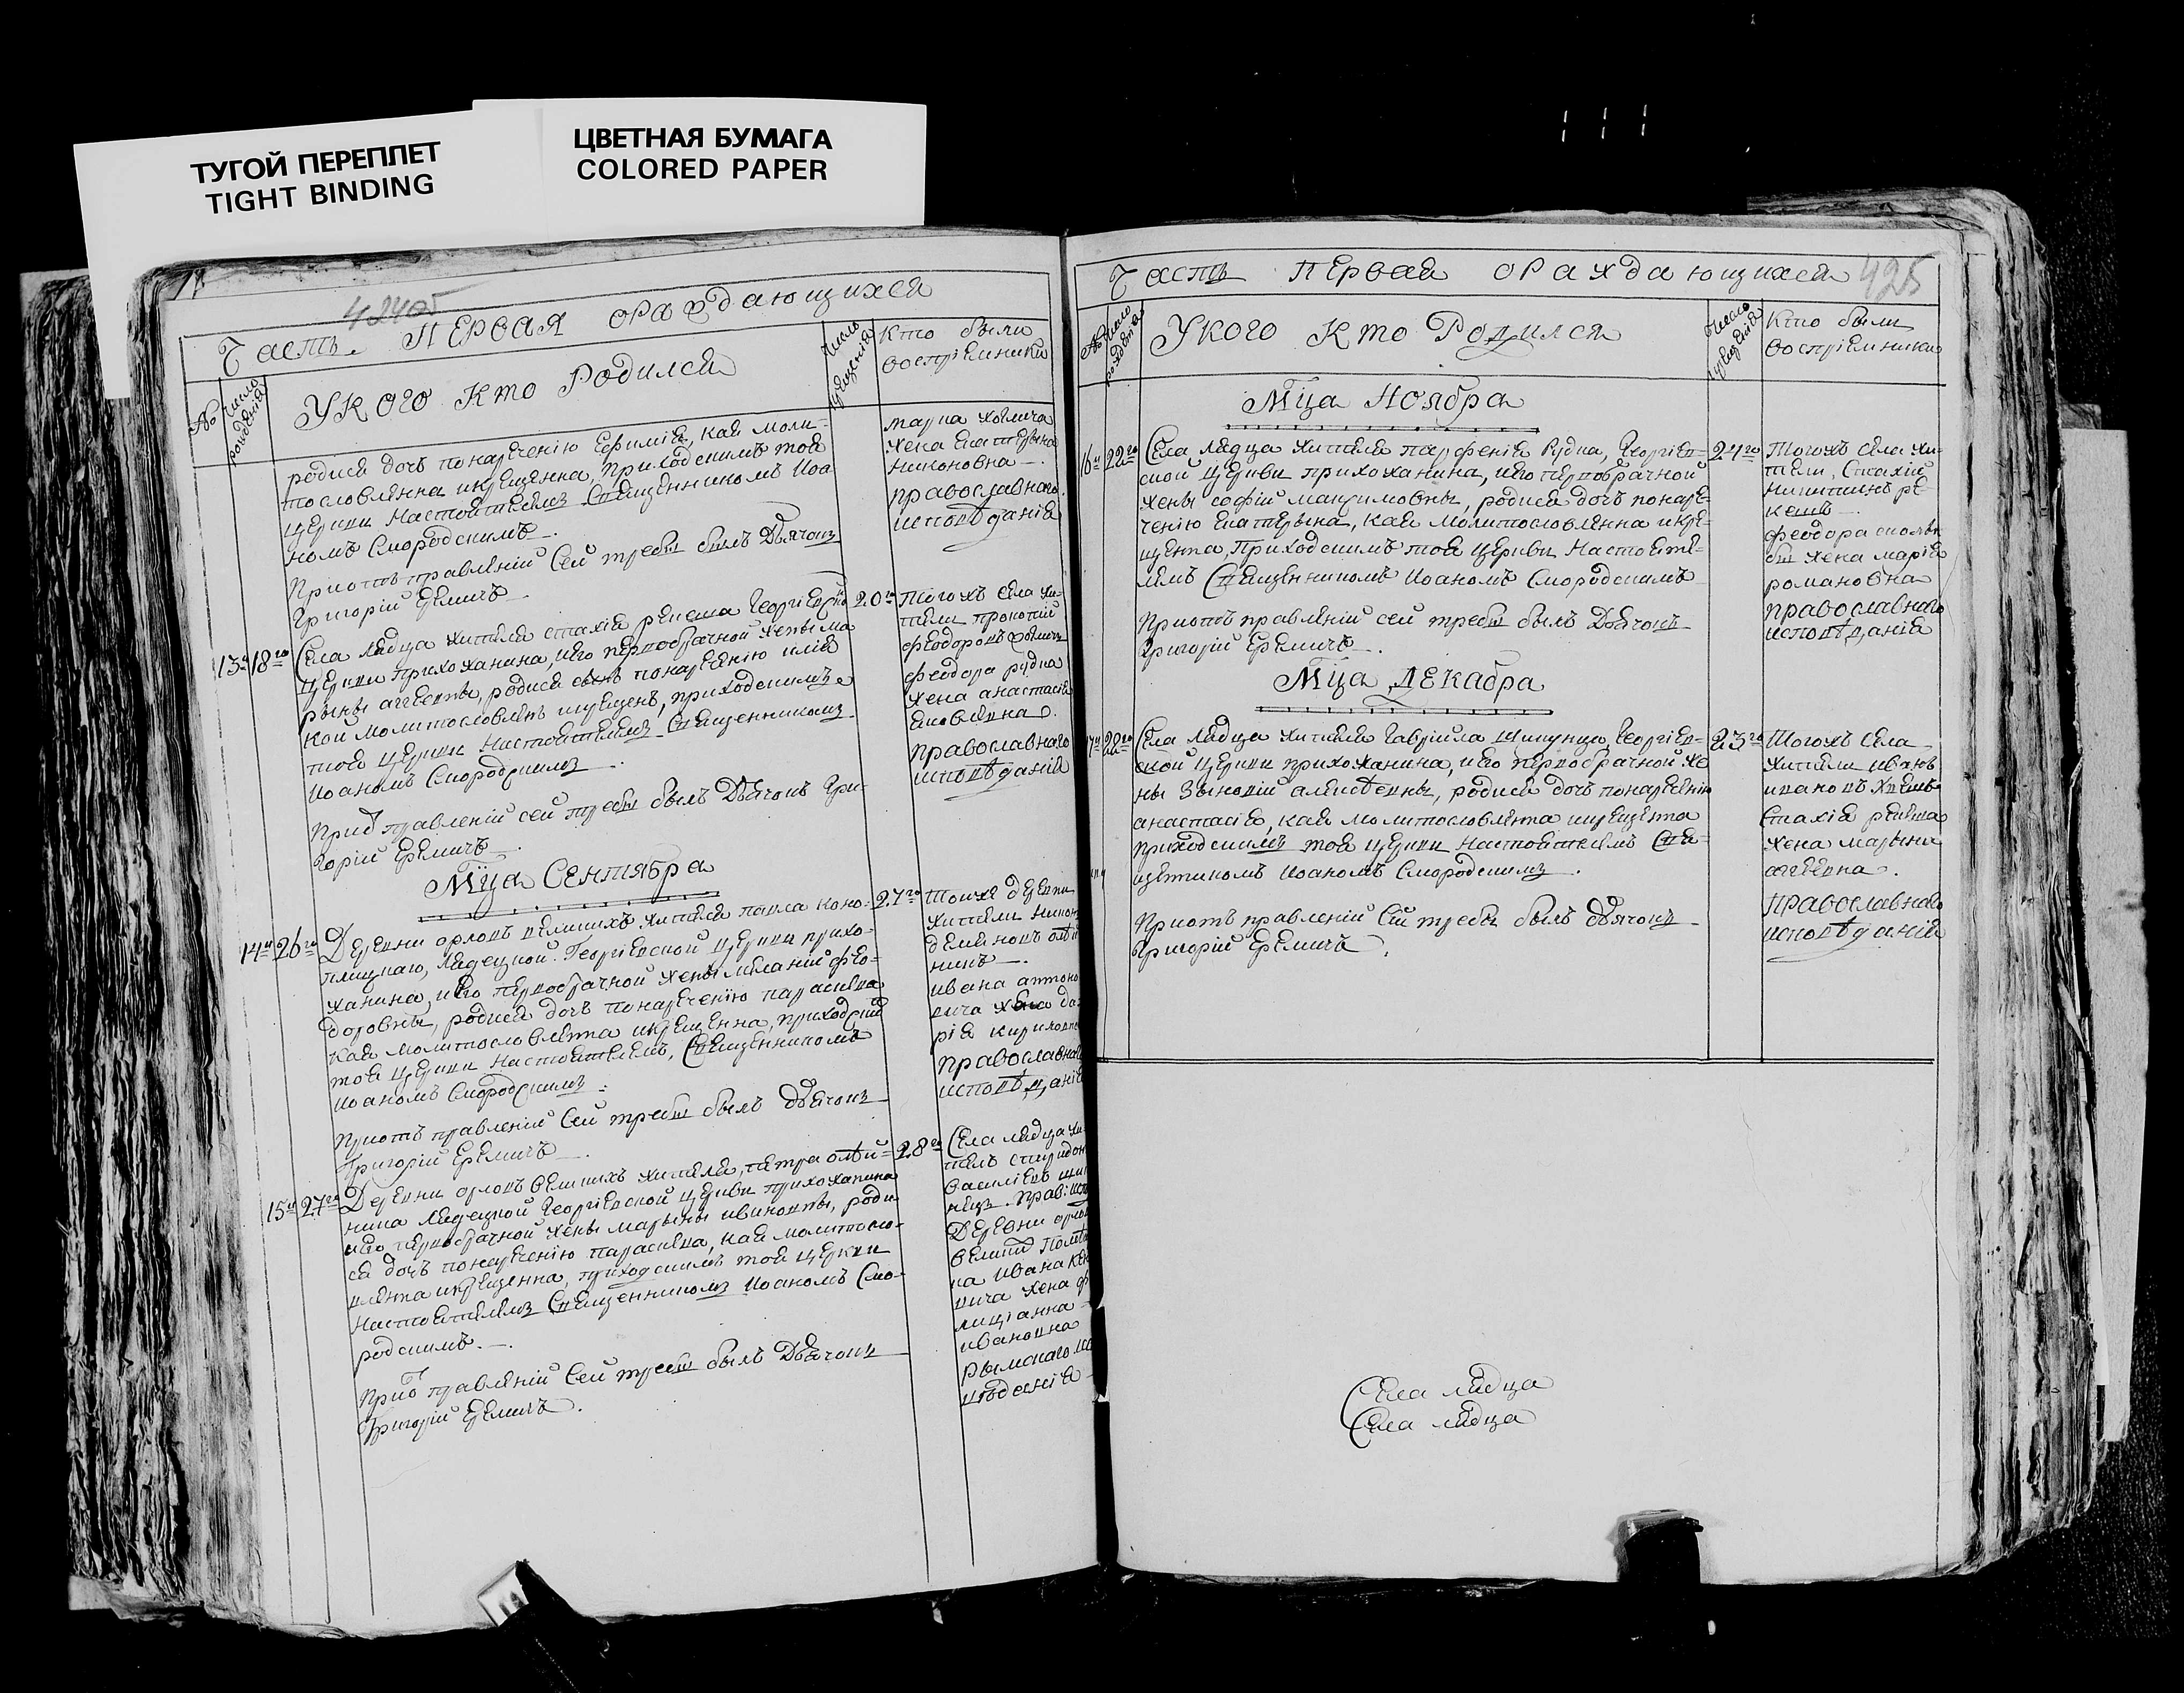 ТУГОЙ ПЕРЕПЛЕТ
TIGHT BINDING
ЦВЕТНАЯ БУМАГА
COLORED PAPER
424об
Часть Первая о Раждающихся
№
число рождения
У Кого Кто Родился
число крещения
Кто были
восприемники
родися дочь понаречению Ефимия, кая моли-
тословлена и крещенна, приходскимъ тоя
церкви Настоятелемъ Священникомъ Иоа
номъ Смородскимъ.
При отправлении Сей требы былъ Дьячокъ
Григорий Еремичъ
жена Екатерына
Никоновна
православнаго
исповѣдания
13й 18го
Села лядца жителя стахия рекеша Георгиевской
церкви прихожанина, и его первобрачной жены ма
рыны аггеевны, родися сынъ понаречению илия
кой молитословленъ и крещенъ, приходскимъ
тоей церкви Настоятелемъ Священникомъ
Иоаномъ Смородскимъ
При отправлении сей требы былъ Дьячокъ Гри-
горий Еремичъ
20го
Тогожъ села жи-
тели прокопий
феодоровъ
феодора рудка
жена анастасия
яковлевна
православнаго
исповѣдания
Мца Сентября
14й 26го
Деревни орловъ великихъ жителя павла коно-
плицкаго, лядецкой Георгиевской церкви прихо-
жанина, и его первобрачной жены мелании фео-
доровны, родися дочь понаречению параскева
кая молитословлена и крещенна, приходский
тоя церкви Настоятелемъ, Священникомъ
Иоаномъ Смородскимъ
При отправлении Сей требы былъ дьячокъ
Григорий Еремичъ
27го
Тоежъ деревни
жители никон
демяновъ олѣй
никъ
ивана антоно
вича жена да
рия кирилов
православна
исповѣдания
15й 27го
Деревни орловъ великихъ жителя, петра олѣй-
ника лядецкой Георгиевской церкви прихожанина
и его первобрачной жены марыны ивановны, роди
ся дочь понаречению параскева, кая молитосло-
влена и крещенна, приходскимъ тоя церкви
Настоятелемъ Священникомъ Иоаномъ Смо-
родскимъ.
При отправлении Сей требы былъ Дьячокъ
Григорий Еремичъ.
28го
Села лядца жи
тель спиридон
василиевъ
Деревни орлов
ка ивана
вича жена ф
лицианна
ивановна
рымскаго
Часть первая о Раждающихся 425
№
число рождения
У Кого Кто Родился
число крещения
Кто были
восприемники
Мца Ноября
16й 22го
Села лядца жителя парфения Рудка, Георгиев-
ской Церкви прихожанина, и его первобрачной
жены софий максимовны, родися дочь понаре-
чению екатерына, кая молитословленна и кре-
щенна, Приходскимъ тоя Церкви Настояте-
лемъ Священникомъ Иоаномъ Смородскимъ
При отправлении сей требы былъ Дьячокъ
Григорий Еремичъ.
24го
Тогожъ села жи-
тели, Стахий
никитинъ ре-
кешъ
феодора
жена мария
романовна
православнаго
исповѣдания
Мца Декабра
17й 22го
Села лядца жителя Гавриила Шикунца Георгиев-
ской церкви прихожанина, и его первобрачной же
ны Зыновии алексеевны, родися дочь понаречению
анастасия, кая молитословленна и крещенна
приходскимъ тоя церкви Настоятелемъ Свя-
щенникомъ Иоаномъ Смородскимъ.
При отправлении Сей требы былъ дьячокъ
Григорий Еремичъ.
23го
Тогожъ села
жители иванъ
ивановъ
Стахия рекеша
жена марына
аггеевна.
православнаго
исповѣдания
Села лядца
Села лядца